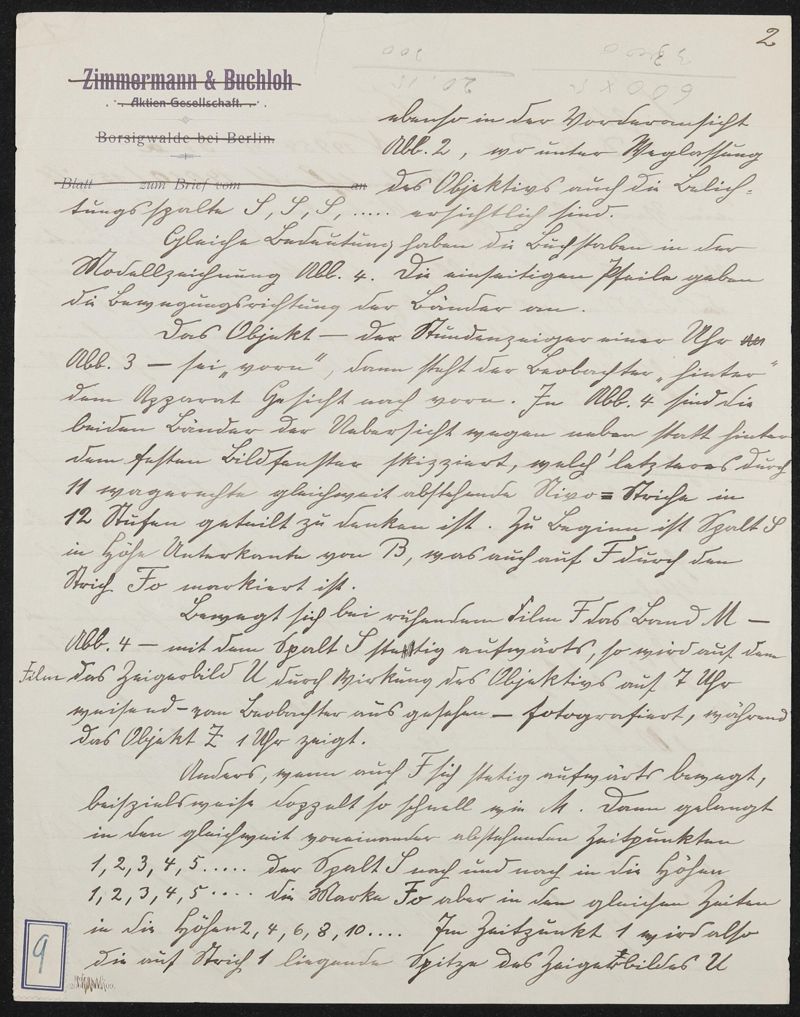 2
Zimmermann & Buchloh
Aktien-Gesellschaft.
Borsigwalde bei Berlin.
Blatt zum Brief vom an
ebenso in der Vorderansicht
Abb. 2, wo unter Weglassung
des Objektivs auch die Belich-
tungsspalte S, S, S, ..... ersichtlich sind.
Gleiche Bedeutung haben die Buchstaben in der
Modellzeichnung Abb. 4. Die einseitigen Pfeile geben
die Bewegungsrichtung der Bänder an.
Das Objekt – der Stundenzeiger einer Uhr
Abb. 3 – sei „vorn“, dann steht der Beobachter „hinter“
dem Apparat Gesicht nach vorn. In Abb. 4 sind die
beiden Bänder der Uebersicht wegen neben statt hinter
dem festen Bildfenster skizziert, welch' letzteres durch
11 wagerechte gleichweit abstehende Nivo=Striche in
12 Stufen geteilt zu denken ist. Zu Beginn ist Spalt S
in Höhe Unterkante von B, was auch auf F durch den
Strich Fo markiert ist.
Bewegt sich bei ruhendem Film F das Band M –
Abb. 4 – mit dem Spalt S stetig aufwärts, so wird auf dem
Film das Zeigerbild U durch Wirkung des Objektivs auf 7 Uhr
weisend – vom Beobachter aus gesehen – fotografiert, während
das Objekt Z 1 Uhr zeigt.
Anders, wenn auch F sich stetig aufwärts bewegt,
beispielsweise doppelt so schnell wie M. Dann gelangt
in den gleichweit voneinander abstehenden Zeitpunkten
1, 2, 3, 4, 5 ..... der Spalt S nach und nach in die Höhen
1, 2, 3, 4, 5 .... die Marke Fo aber in den gleichen Zeiten
in die Höhen 2, 4, 6, 8, 10 .... Im Zeitpunkt 1 wird also
die auf Strich 1 liegende Spitze des Zeigerbildes U
9